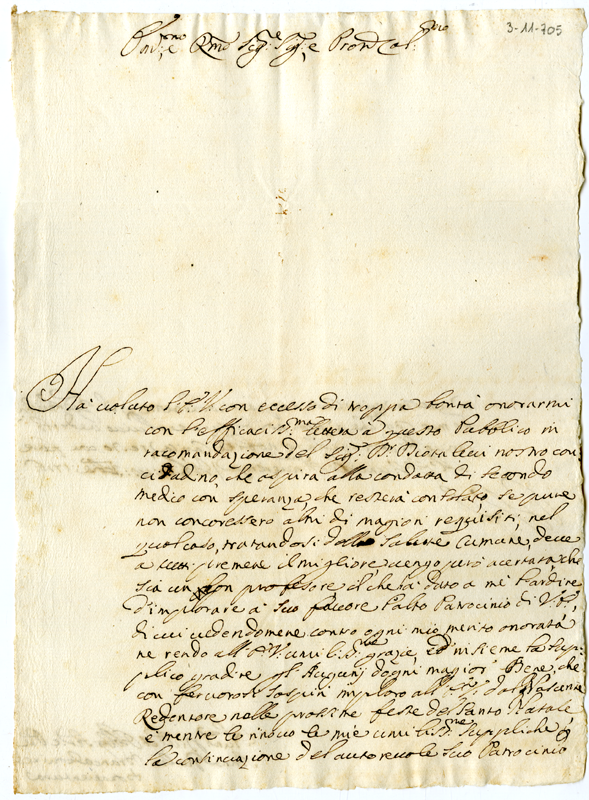 3-11-705
Em.e Rmo Sig.e Sig.e e Pron Col.mo
Hà voluto l'E.V. con eccesso di troppa bontà onorarmi
con l'efficacis.ma lettera à questo Pubblico in
racomandazione del Sig.r D.r nostro con
cidadino, che aspira alla condotta di secondo
medico con speranza, che resterà consolato se pure
non concoressero altri di magiori requisiti, nel
qual caso, trattandosi della Salute Comune, deve
a tutti premere il migliore vengo però acertato, che
sia un bon profesore il che hà dato a me l'ardire
d'implorare a suo favore l'alto Patrocinio di V.E.,
di cui vedendomene contro ogni mio merito onorato
ne rendo all'E.V. umilis.me grazie, ed insieme la sup-
plico gradire gl'Auguri d'ogni magior Bene, che
con fervorosi sospiri imploro all'E.V. dal Nascente
Redentore nelle prossime feste del Santo Natale
e mentre le rinovo le mie umilis.me suppliche p
la continuazione del autorevole suo Patrocinio